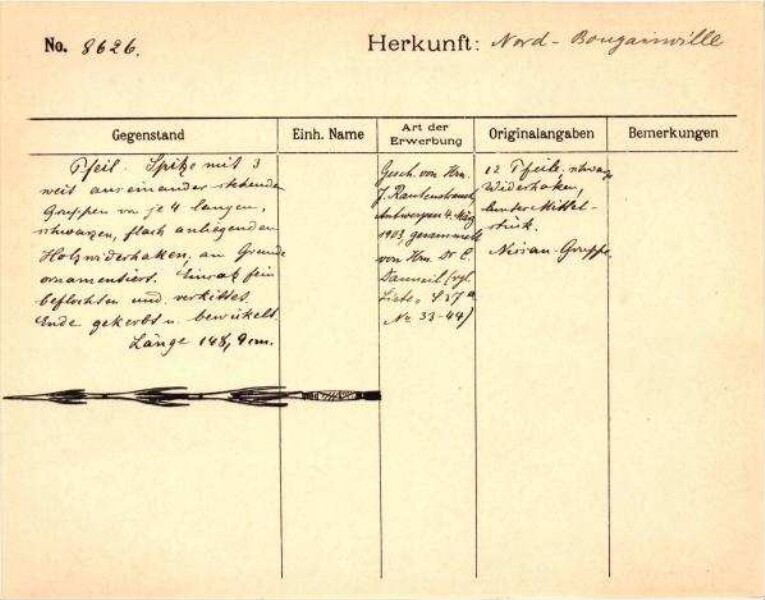 No. 8626.
Herkunft: Nord-Bougainville
Gegenstand
Einh. Name
Art der
Erwerbung
Originalangaben
Bemerkungen
Pfeil. Spitze mit 3
weit auseinander stehenden
Gruppen von je 4 langen,
schwarzen, flach anliegenden
Holzwiderhaken, am Grunde
ornamentiert. Einsatz fein
beflochten und verkittet.
Ende gekerbt u. bewickelt.
Länge 148,9 cm.
Gesch. von Hrn.
J. Rautenstrauch,
Antwerpen 4. März
1903, gesammelt
von Hrn. Dr. C.
Danneil (vgl.
Liste, S 37a
No 33-44)
12 Pfeile, schwarze
Widerhaken,
buntes Mittel-
stück.
Nissan-Gruppe.